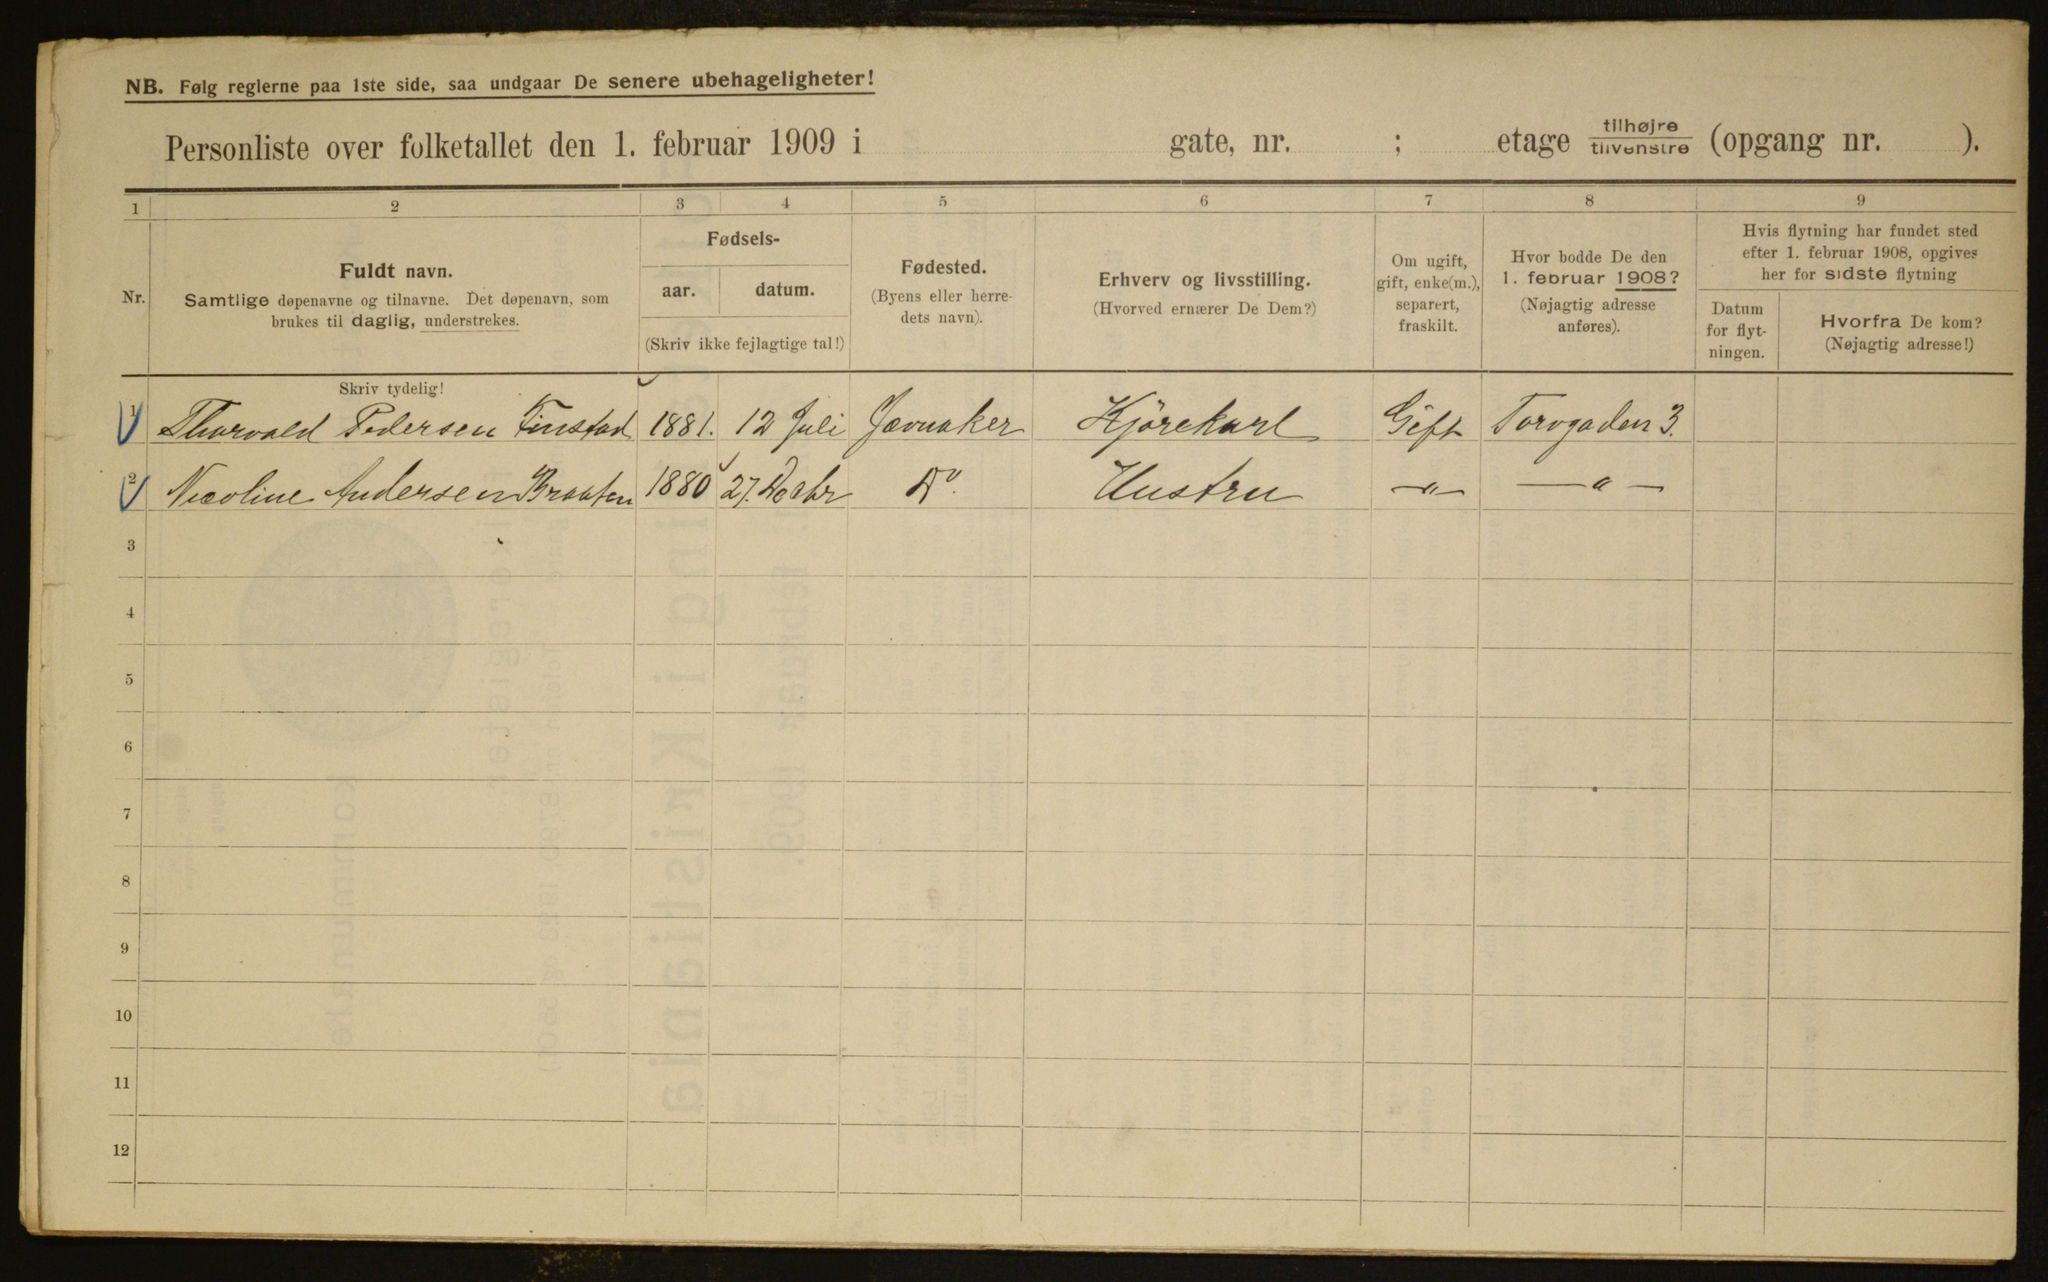 NB. Følg reglerne paa 1ste side, saa undgaar De senere ubehageligheter!
Personliste over folketallet den 1. februar 1909 i gate, nr. ; etage tilhøjre tilvenstre (opgang nr. ).
1 2 3 4 5 6 7 8 9
Nr.
Fuldt navn.
Samtlige døpenavne og tilnavne. Det døpenavn, som
brukes til daglig, understrekes.
Fødsels-
aar. datum.
(Skriv ikke fejlagtige tal!)
Fødested.
(Byens eller herre-
dets navn).
Erhverv og livsstilling.
(Hvorved ernærer De Dem?)
Om ugift,
gift, enke(m.),
separert,
fraskilt.
Hvor bodde De den
1. februar 1908?
(Nøjagtig adresse
anføres).
Hvis flytning har fundet sted
efter 1. februar 1908, opgives
her for sidste flytning
Datum
for flyt-
ningen.
Hvorfra De kom?
(Nøjagtig adresse!)
Skriv tydelig!
1 Thorvald Pedersen Finstad 1881. 12 Juli Jævnaker Kjörekarl Gift Torvgaden 3.
2 Nicoline Andersen Braaten 1880 27. Do. Hustru —"— —"—
3
4
5
6
7
8
9
10
11
12